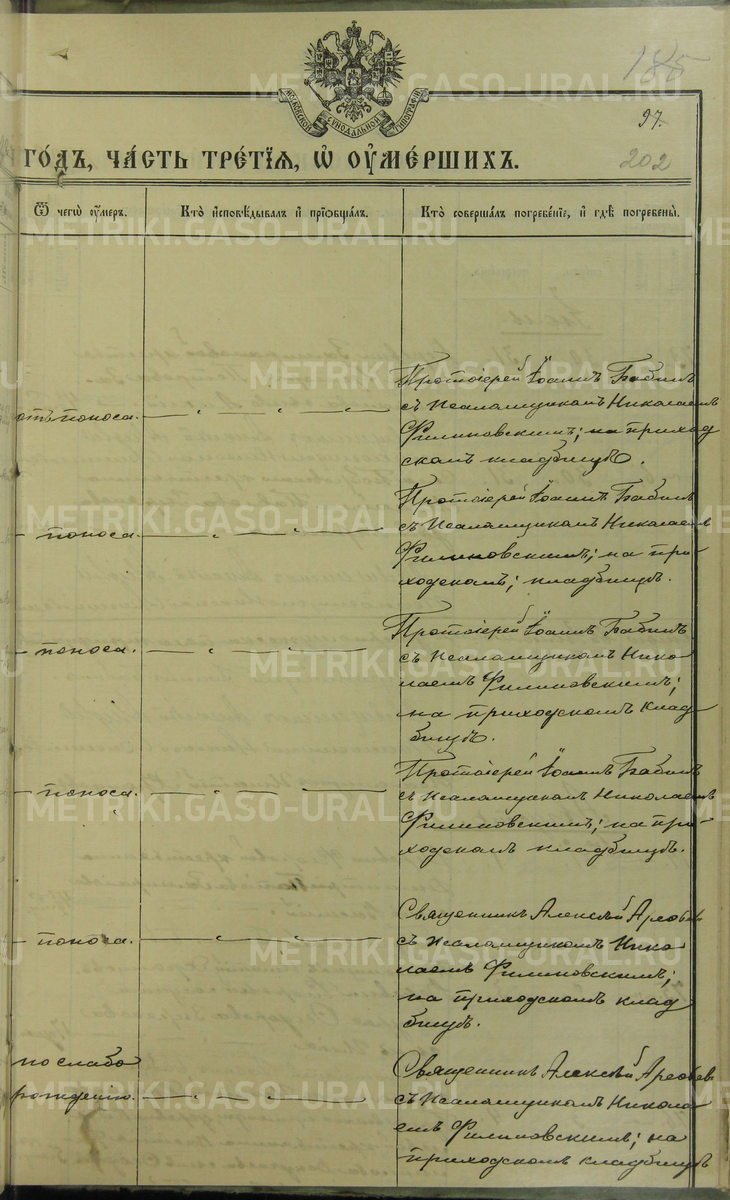 185
МОСКОВСКОЙ СУНОДАЛЬНОЙ ТИПОГРАФІИ
97.
202
го́дъ, ча́сть тре́тїѧ, ѡ оуме́ршихъ.
Ѿ чегѡ̀ оу́меръ.
Кто̀ и҆сповѣ́дывалъ и҆ прїѡбща́лъ.
Кто̀ соверша́лъ погребе́нїе, и҆ гдѣ̀ погребены̀.
отъ поноса.
Протоіерей Іоаннъ Бабинъ
съ Псаломщикомъ Николаемъ
Филиповскимъ; на приход
скомъ кладбищѣ.
– поноса.
Протоіерей Іоаннъ Бабинъ
съ Псаломщикомъ Николаемъ
Филиповскимъ; на при-
ходскомъ; кладбищѣ.
– поноса.
Протоіерей Іоаннъ Бабинъ
съ Псаломщикомъ Нико
лаемъ Филиповскимъ;
на приходскомъ клад
бищѣ.
– поноса.
Протоіерей Іоаннъ Бабинъ
съ Псаломщикомъ Николаемъ
Филиповскимъ; на при-
ходскомъ кладбищѣ.
– поноса.
Священникъ Алексѣй
съ Псаломщикомъ Нико
лаемъ Филиповскимъ;
на приходскомъ клад
бищѣ.
по слабо
рожденію.
Священникъ Алексѣй
съ Псаломщикомъ Никола
емъ Филиповскимъ; на
приходскомъ кладбищѣ
METRIKI.GASO-URAL.RU